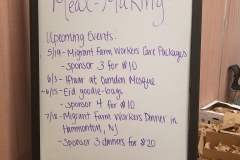 Meal-Making!
Upcoming Events:
5/19 - Migrant Farm Workers Care Packages
- Sponsor 3 for $10
6/3 - Iftaar at Camden Mosque
6/15 - Eid goodie-bags
- sponsor 4 for $10
7/18 - Migrant Farm Workers Dinner in
Hammonton, NJ
- Sponsor 3 dinners for $20